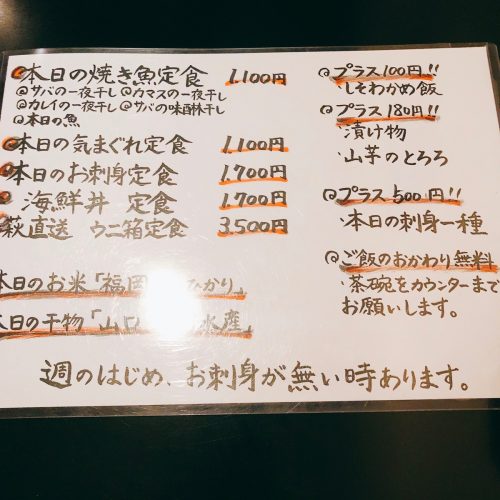 本日の焼き魚定食 1,100円
サバの一夜干し カマスの一夜干し
カレイの一夜干し サバの味醂干し
本日の魚
本日の気まぐれ定食 1,100円
本日のお刺身定食 1,700円
海鮮丼 定食 1,700円
萩直送 ウニ箱定食 3,500円
本日のお米「福岡 ひかり」
本日の干物「山口 水産」
プラス100円!!
・しそわかめ飯
プラス180円!!
・漬け物
山芋のとろろ
プラス500円!!
・本日の刺身一種
ご飯のおかわり無料
・茶碗をカウンターまで
お願いします。
週のはじめ、お刺身が無い時あります。